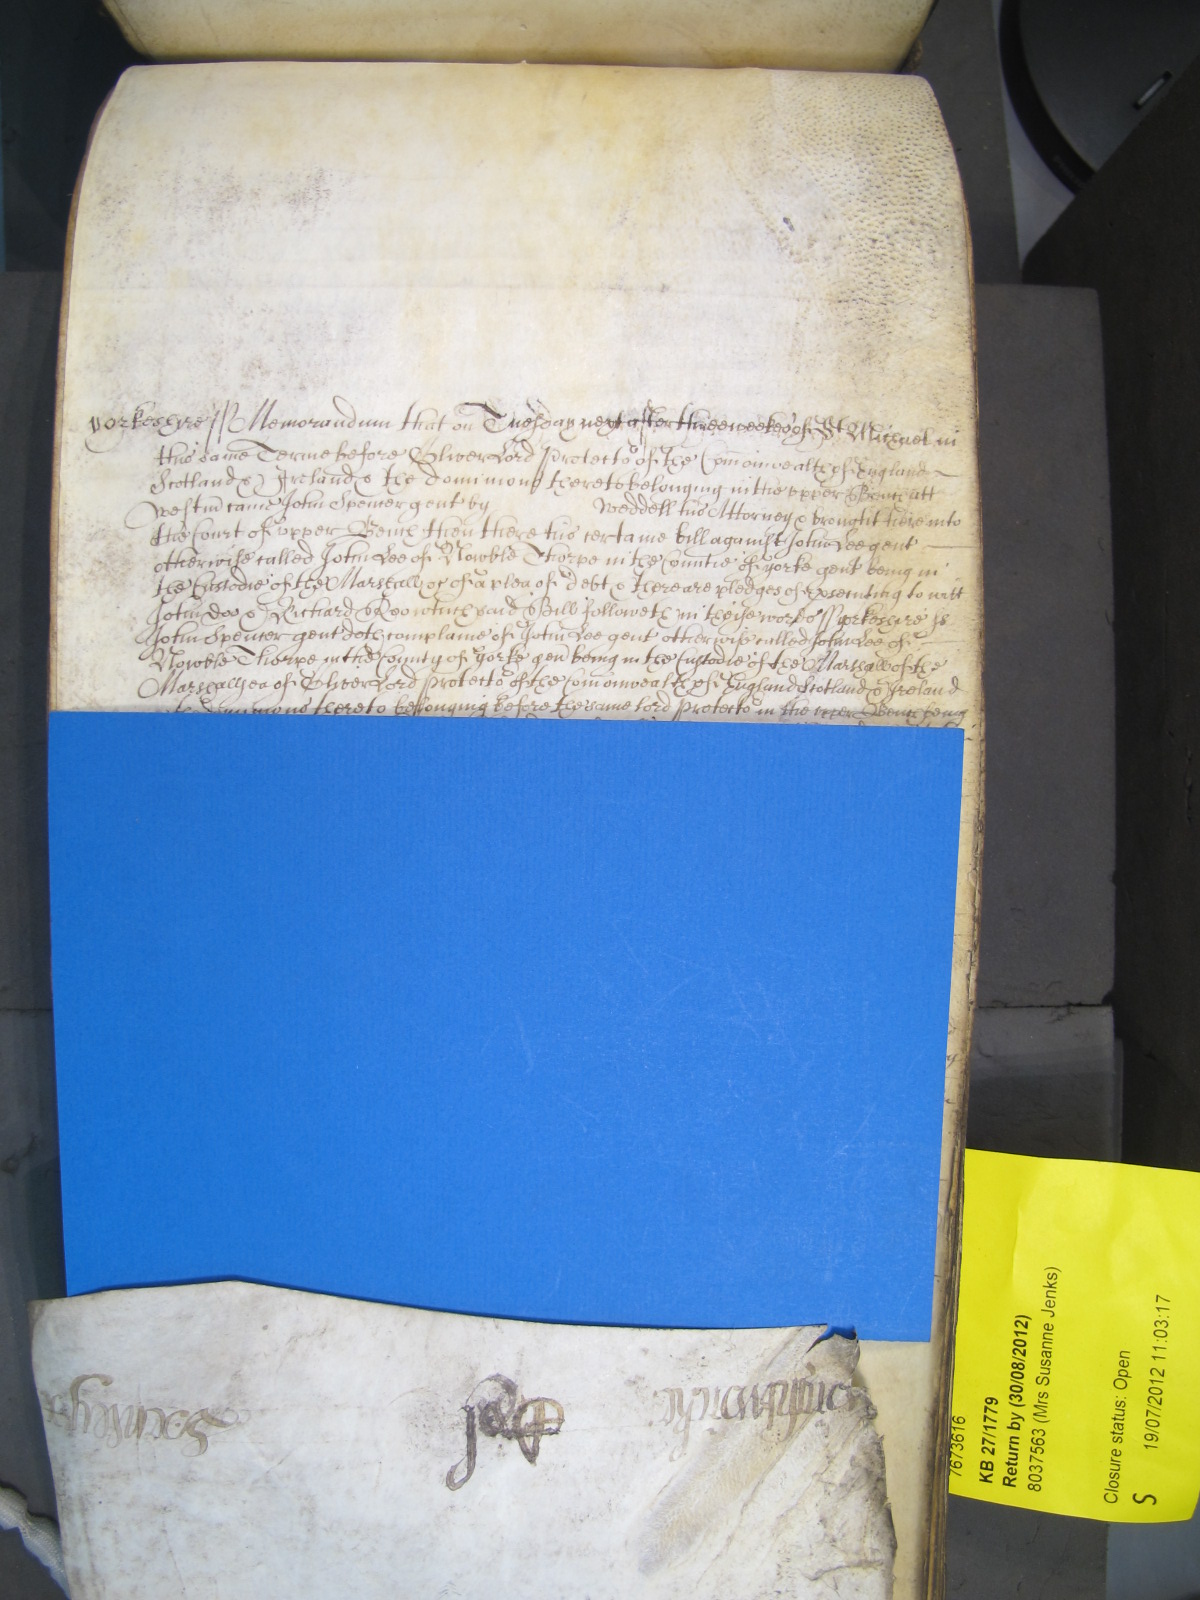 Yorkeshyre ss Memorandum that on Tuesday next after three weekes of St Michael in
this same Terme before Oliver Lord Protector of the Comonwealth of England
Scotland & Ireland & the dominions thereto belonging in the upper Bench att
Westm came John Spencer gent by Weddell his Attorney & brought here into
the Court of upper Bench then there his certaine bill against John Lee gent
otherwise called John Lee of Nowble Thorpe in the Countie of Yorke gent being in
the Custodie of the Marshall &c of a plea of debt & there are pledges of prosecuting to witt
John doo & Richard Roo which said Bill followeth in theise words ss Yorkeshire ss
John Spencer gent doth complaine of John Lee gent otherwise called John Lee of
Nowble Thorpe in the County of Yorke gen being in the Custodie of the Marshall of the
Marshallsea of Oliver Lord Protector of the Comonwealth of England Scotland & Ireland
& the dominions thereto belonging before the same Lord Protector in the upper Bench being
7673616
KB 27/1779
Return by (30/08/2012)
8037563 (Mrs Susanne Jenks)
Closure status: Open
S 19/07/2012 11:03:17